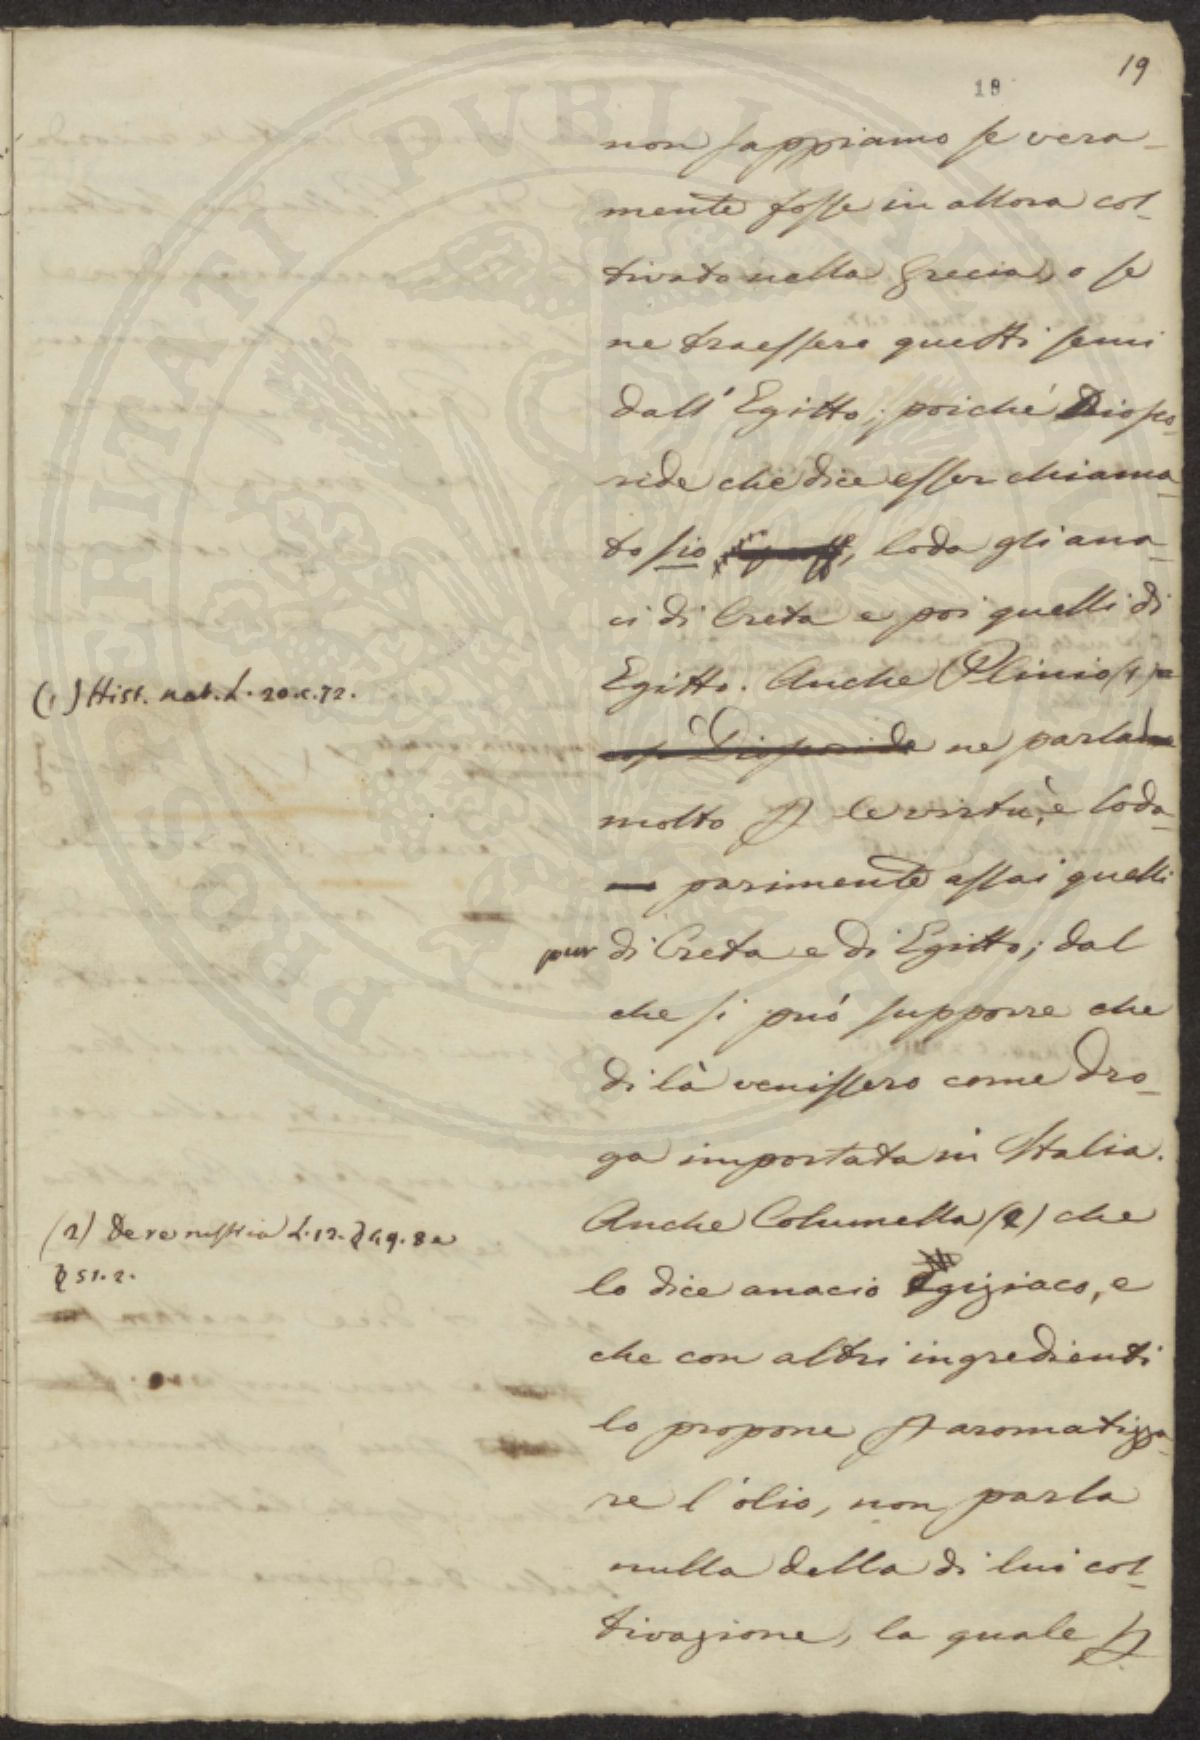 19
18
non sappiamo se vera-
mente fosse in allora col-
tivato nella Grecia, o se
ne traessero questi semi
dall' Egitto; poiché Diosco-
ride che dice esser chiama-
to sio, loda gli ana-
ci di Creta e poi quelli di
Egitto. Anche Plinio (1)
così Dioscoride ne parla
molto p le virtù, e loda
parimente assai quelli
pur di Creta e di Egitto; dal
che si può supporre che
di là venissero come dro-
ga importata in Italia.
Anche Columella (2) che
lo dice anacio Egiziaco, e
che con altri ingredienti
lo propone p aromatizza-
re l'olio, non parla
nulla della di lui col-
tivazione, la quale p
(1) Hist. nat. L. 20. c. 72.
(2) De re rustica L. 12. § 49. 8 e
§ 51. 2.
PROSPERITATI PUBLICAE